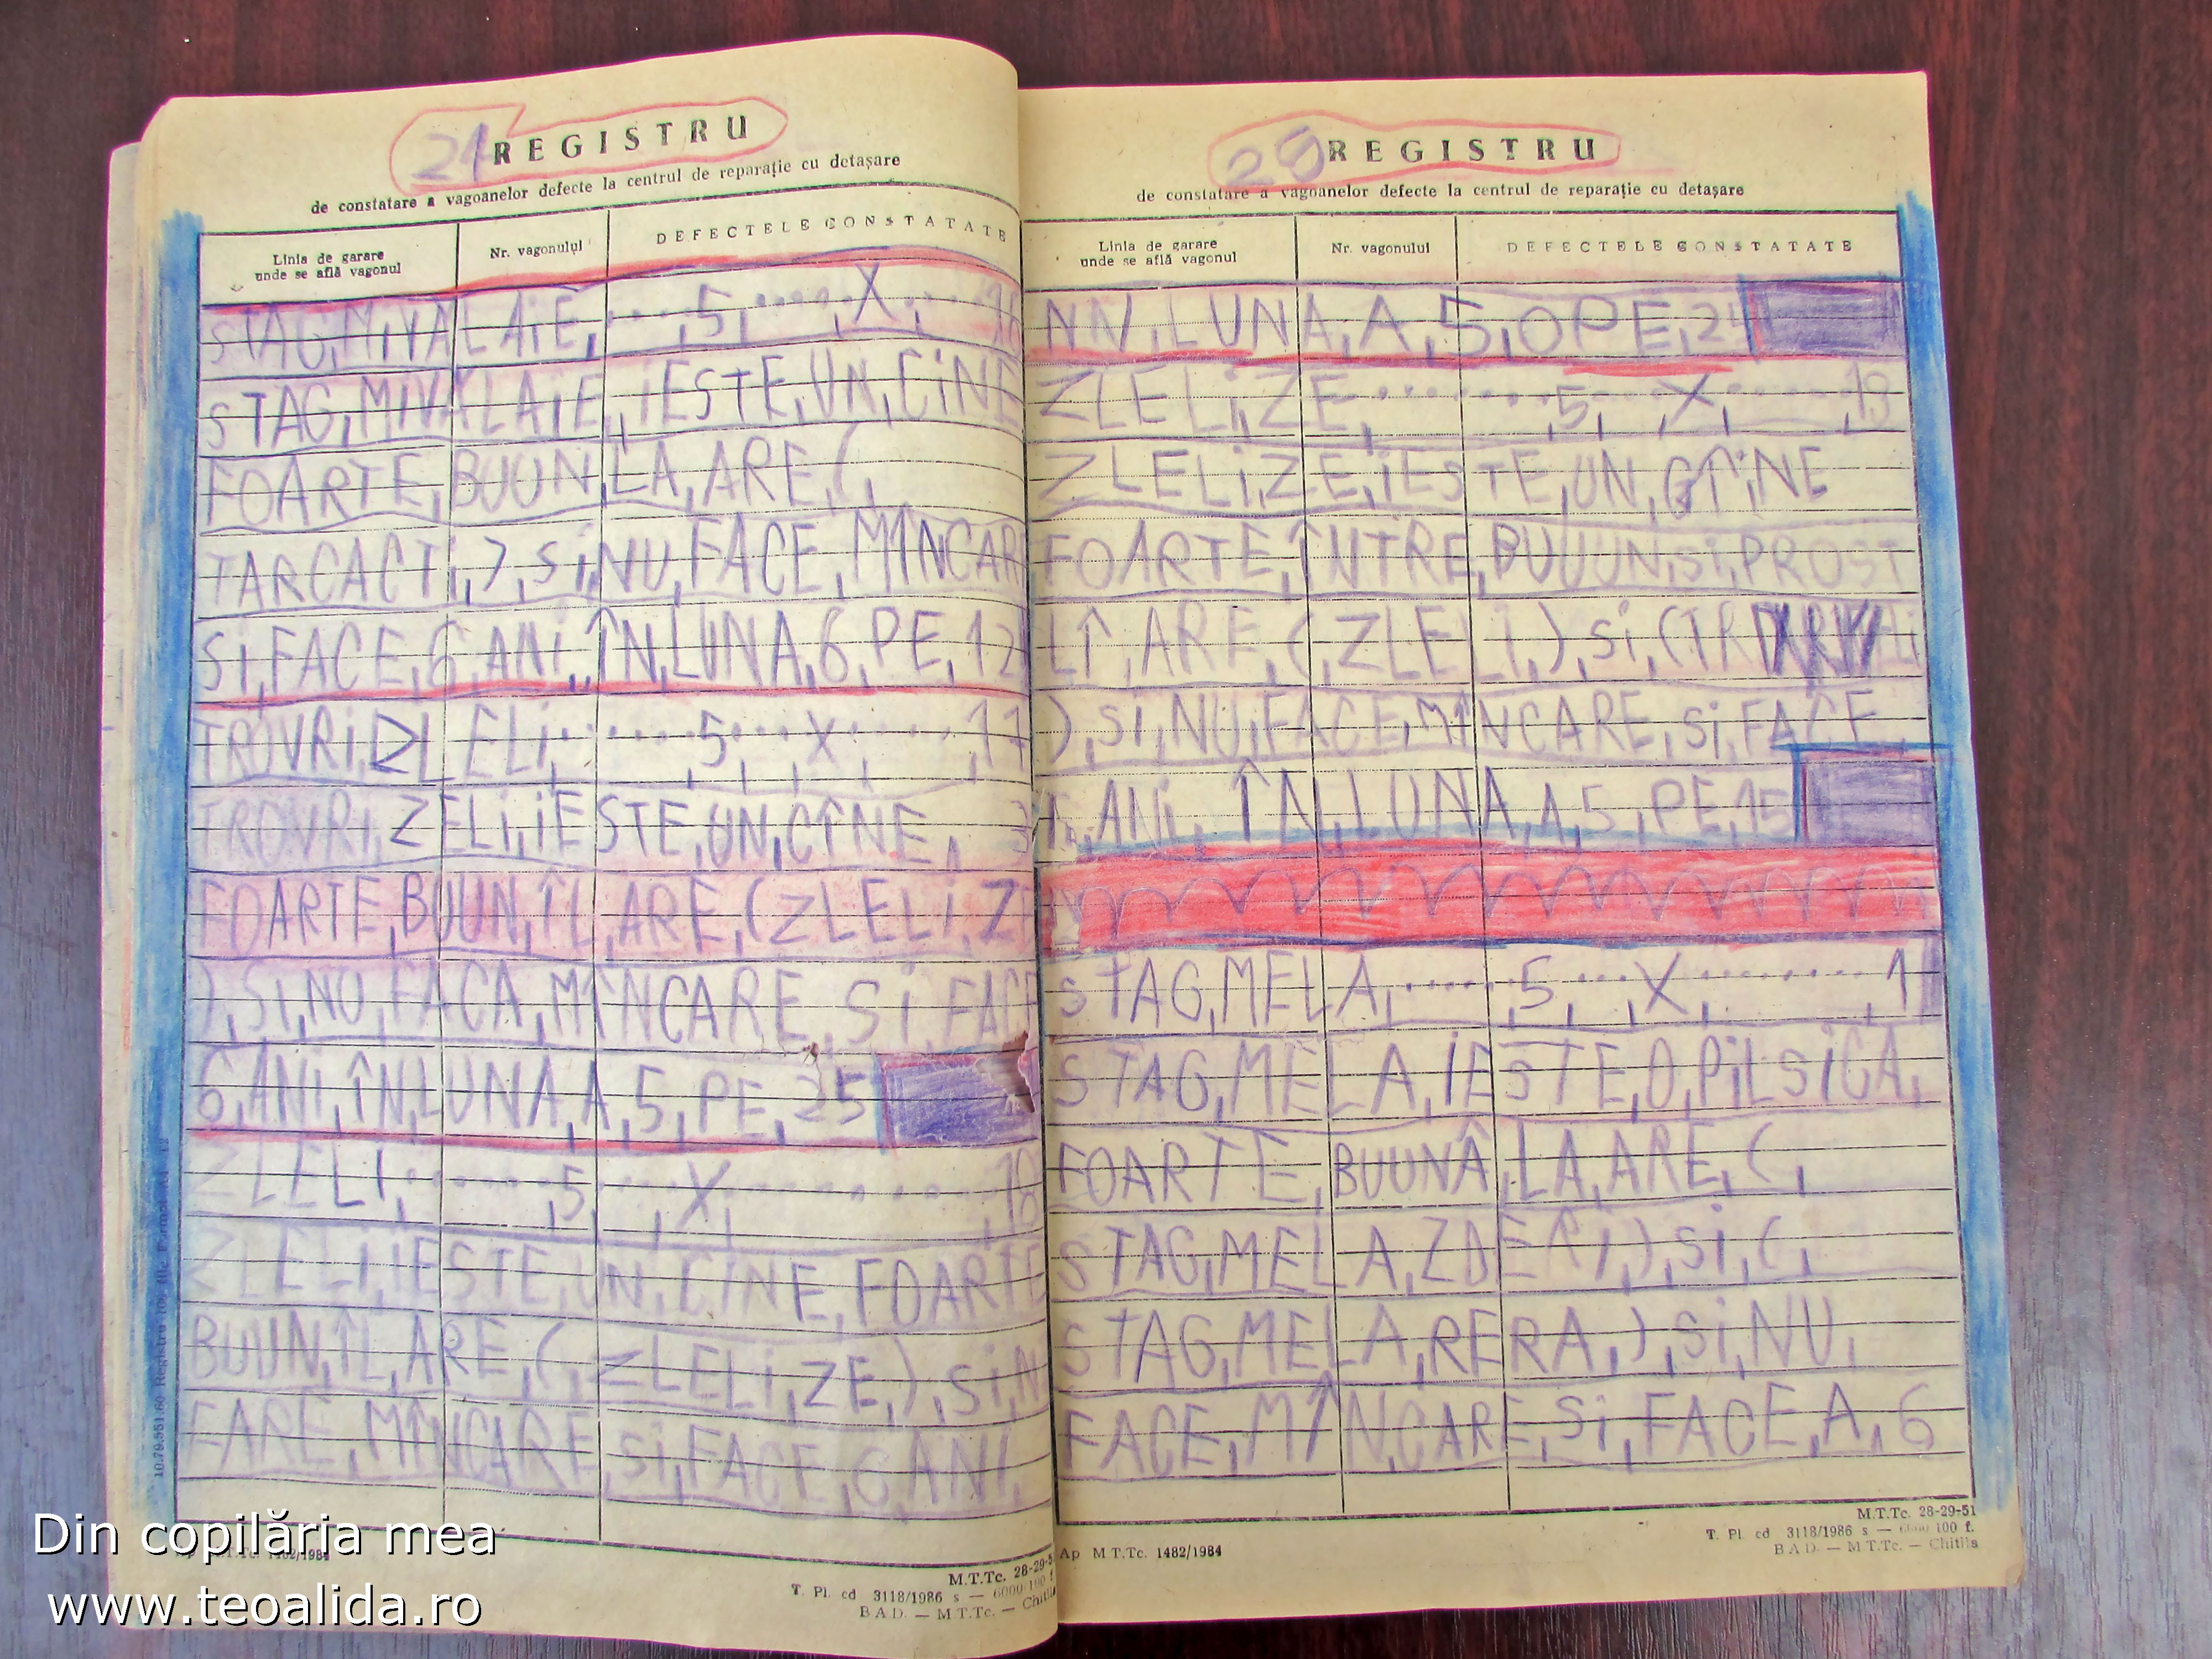 24 REGISTRU
de constatare a vagoanelor defecte la centrul de reparație cu detașare
Linia de garare
unde se află vagonul
Nr. vagonului
DEFECTELE CONSTATATE
STAG,MIVALAIE,....,5,.....,X,....,16
STAG,MIVALAIE,IESTE,UN,CINE
FOARTE,BUUN,LA,ARE,(,
TARCACTI,),SI,NU,FACE,MÎNCAR
SI,FACE,6,ANI,ÎN,LUNA,6,PE,12
TROVRI,ZLELI,......,5,...,X,.....,17
TROVRI,ZELI,IESTE,UN,CÎNE,
FOARTE,BUUN,ÎL,ARE,(ZLELI,Z
),SI,NU,FACA,MÎNCARE,SI,FACE
6,ANI,ÎN,LUNA,A,5,PE,25
ZLELI,.......,5,...,X,..........,18
ZLELI,IESTE,UN,CINE,FOARTE
BUUN,ÎL,ARE,(,ZLELI,ZE,),SI,N
FARE,MÎNCARE,SI,FACE,6ANI,
Ap M.T.Tc. 1482/1984
M.T.Tc. 28-29-5
T. Pl. cd 3118/1986 s — 6000/100 f.
B.A.D. — M.T.Tc. — Chitila
25 REGISTRU
de constatare a vagoanelor defecte la centrul de reparație cu detașare
Linia de garare
unde se află vagonul
Nr. vagonului
DEFECTELE CONSTATATE
NN,LUNA,A,5,OPE,24
ZLELI,ZE,.........,5,...,X,.....,19
ZLELI,ZE,IESTE,UN,GÎNE
FOARTE,ÎNTRE,BUUUN,SI,PROST
LÎ,ARE,(,ZLELI,),SI,(TR
),SI,NU,FACE,MÎNCARE,SI,FACE
ANI,ÎN,LUNA,A,5,PE,15
STAG,MELA,......,5,...,X,........,1
STAG,MELA,IESTE,O,PILSICA,
FOARTE,BUUNÂ,LA,ARE,(,
STAG,MELA,ZDERI,),SI,(,
STAG,MELA,RERA,),SI,NU,
FACE,MÎNCARE,SI,FACE,A,6
Ap M.T.Tc. 1482/1984
M.T.Tc. 28-29-51
T. Pl. cd 3118/1986 s — 6000 100 f.
B.A.D. — M.T.Tc. — Chitila
Din copilăria mea
www.teoalida.ro